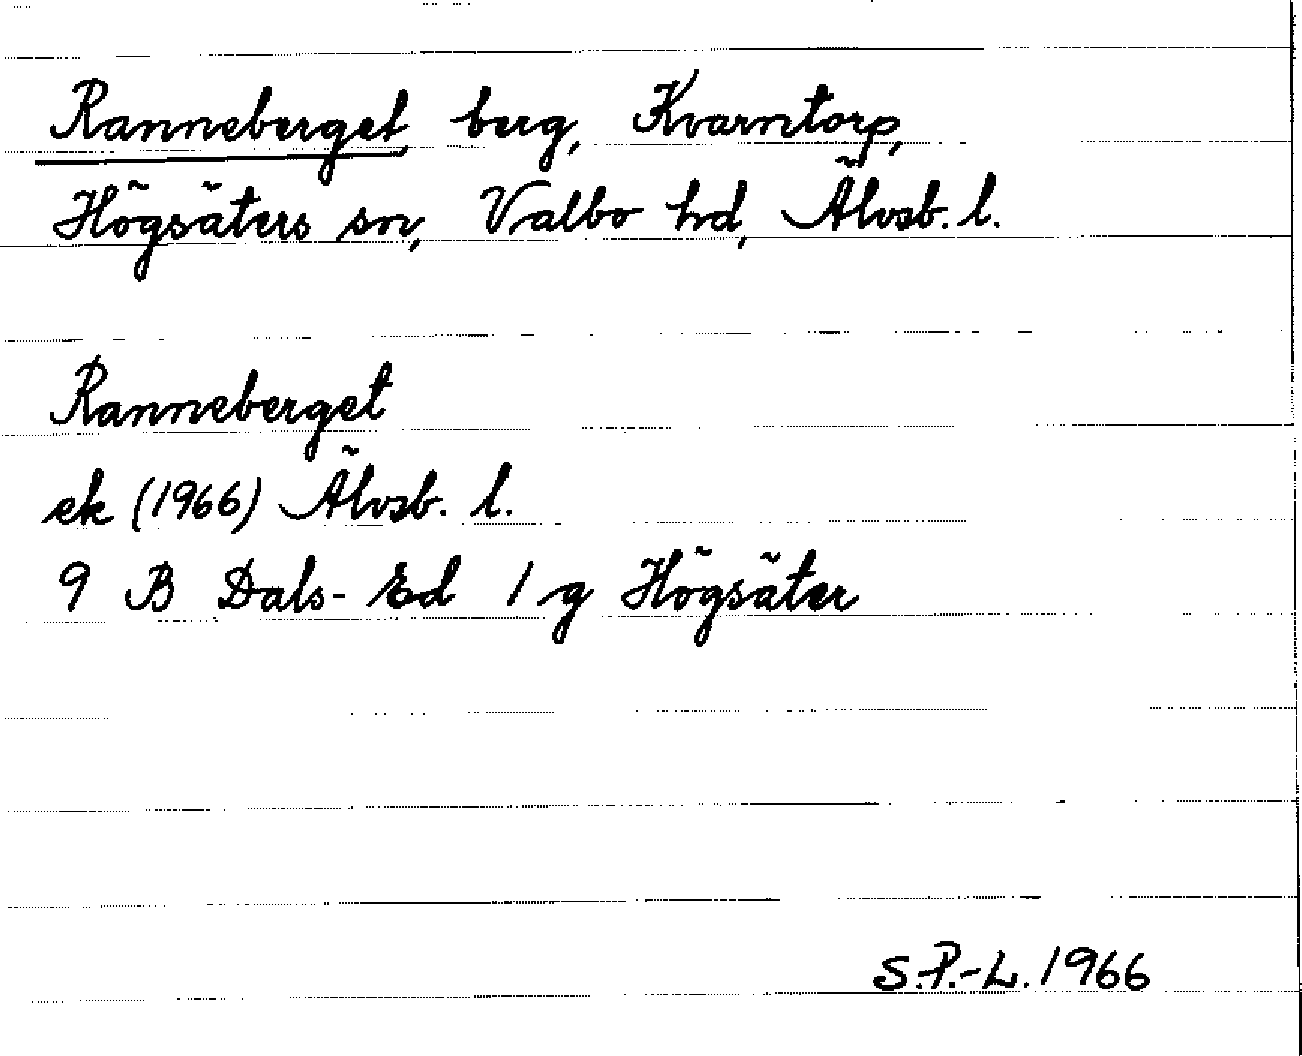 Ranneberget, berg, Kvarntorp,
Högsäters sn, Valbo hd, Älvsb. l.
Ranneberget
ek (1966) Älvsb. l.
9 B Dals-Ed 1 g Högsäter
S.P.-L. 1966